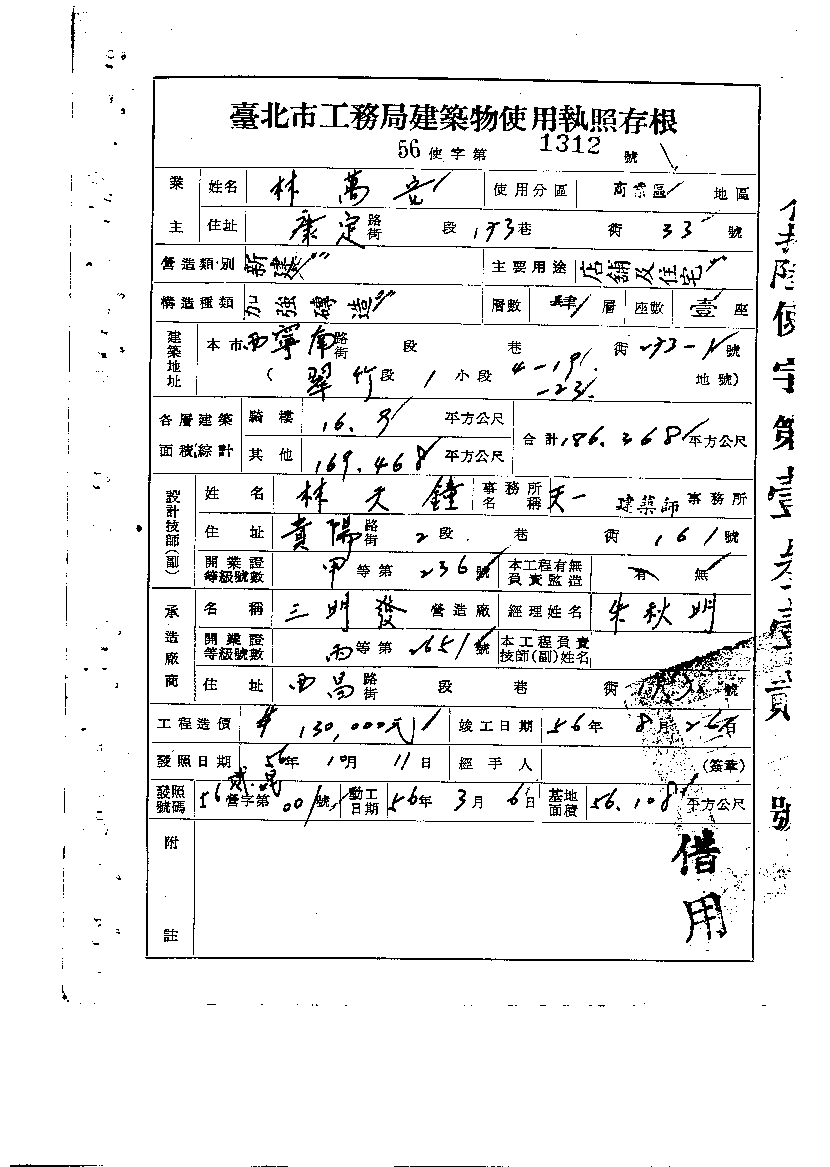 臺北市工務局建築物使用執照存根
56使字第1312號
業主 姓名 林萬 使用分區 商業區 地區
住址 康定路街 段 193巷 衖 33 號
營造類別 新建 主要用途 店舖及住宅
構造種類 加強磚造 層數 肆 層 座數 壹 座
建築地址 本市西寧南路街 段 巷 衖 293-1號
(翠竹段 1 小段 4-19 -23 地號)
各層建築面積綜計 騎樓 16.9 平方公尺 合計 186.368 平方公尺
其他 169.468 平方公尺
設計技師(副) 姓名 林天鐘 事務所名稱 天一 建築師事務所
住址 貴陽路街 2段 巷 衖 161號
開業證等級號數 甲等第236號 本工程有無負責監造 有 無
承造廠商 名稱 三明發 營造廠 經理姓名 朱秋明
開業證等級號數 丙等第2651號 本工程負責技師(副)姓名
住址 西昌路街 段 巷 衖 號
工程造價 130,000元 竣工日期 56年8月26日
發照日期 56年10月11日 經手人 (簽章)
發照號碼 56營字第001號 動工日期 56年3月6日 基地面積 56.108平方公尺
附註
借用
使字第壹叁壹貳號